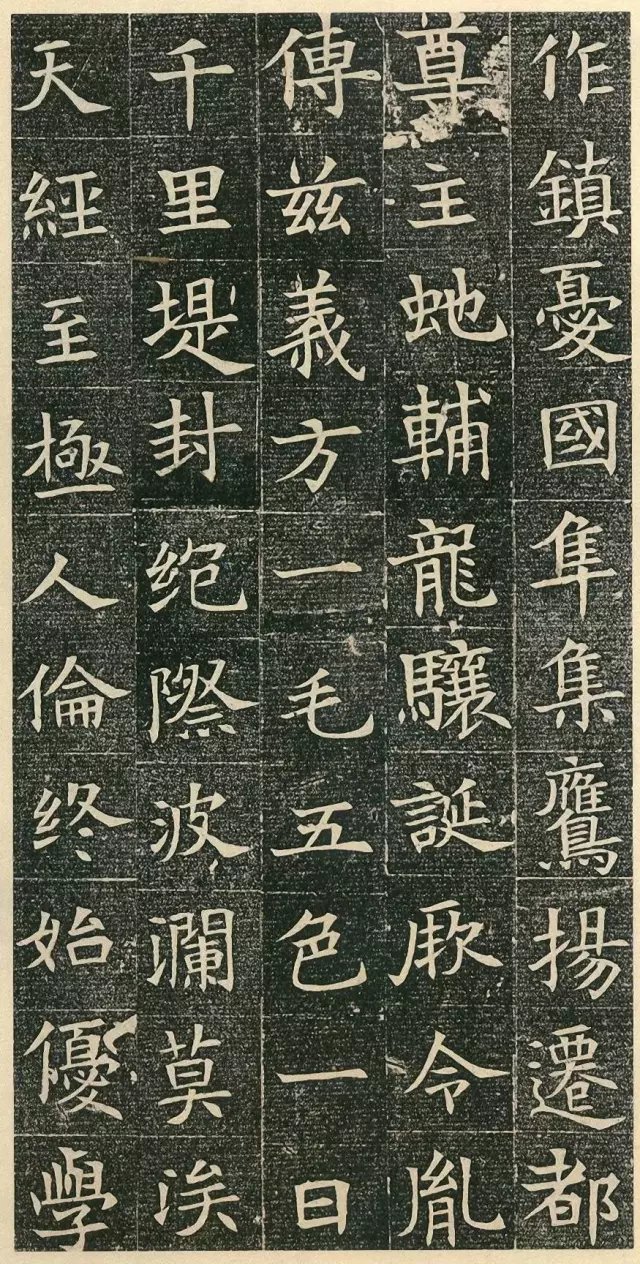 作鎮憂國隼集鷹揚遷都
尊主虵輔龍驤誕厥令胤
傳茲義方一毛五色一日
千里堤封絕際波瀾莫涘
天經至極人倫终始優學